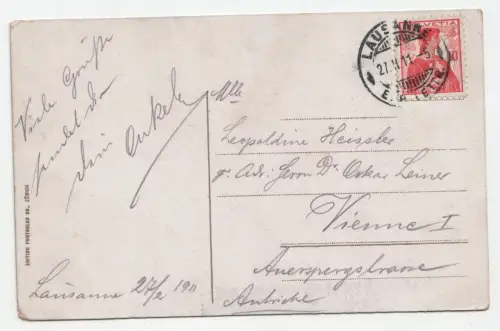 Viele Grüße
sendet Dir
Dein Onkel
Lausanne 27/2 1911
EDITION PHOTOGLOB CO., ZÜRICH
Mlle
Leopoldine Heissler
p. Adr. Herrn Dr. Oskar Leiner
Vienne I
Auerspergstrasse
Autriche
LAUSANNE
27.II.11.-5
HELVETIA
10